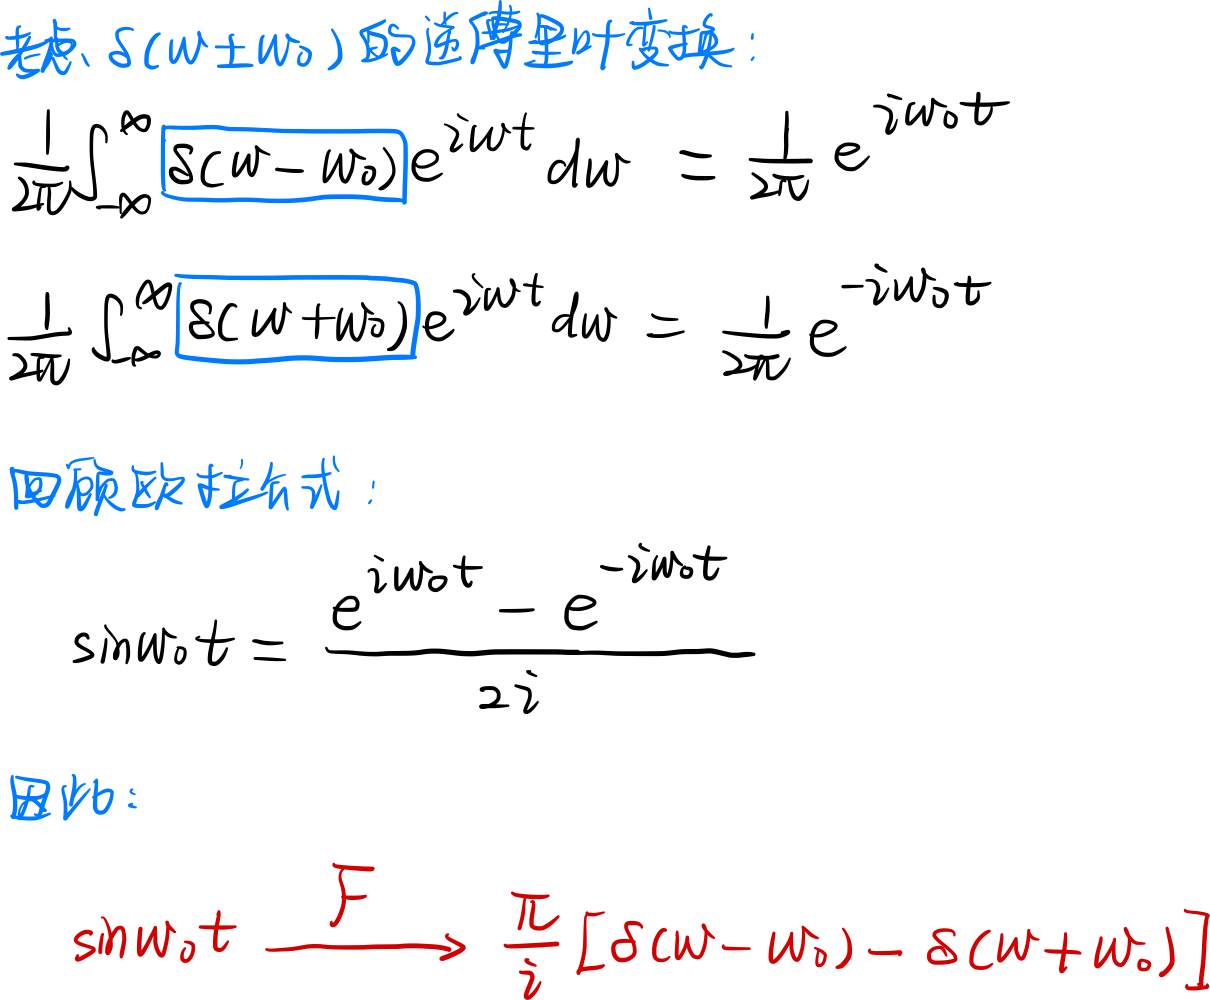 考虑 δ(w±w₀) 的逆傅里叶变换:
\frac{1}{2π}∫_{-∞}^{∞} δ(w-w₀) e^{iwt} dw = \frac{1}{2π} e^{iw₀t}
\frac{1}{2π}∫_{-∞}^{∞} δ(w+w₀) e^{iwt} dw = \frac{1}{2π} e^{-iw₀t}
回顾欧拉公式:
sinw₀t = \frac{e^{iw₀t} - e^{-iw₀t}}{2i}
因此:
sinw₀t \xrightarrow{F} \frac{π}{i} [δ(w-w₀) - δ(w+w₀)]